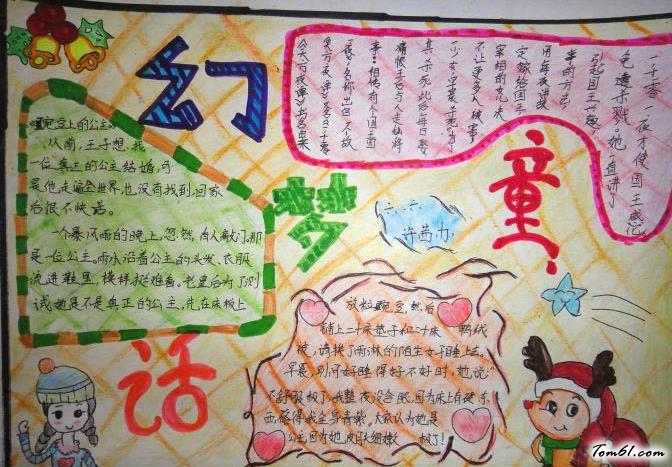 幻
梦
童
话
豌豆上的公主。
从前,王子想找
一位真正的公主结婚,可
是他走遍全世界,也没有找到,回家
后很不快活。
一个暴风雨的晚上,忽然,有人敲门。那
是一位公主。雨水沿着公主的头发、衣服
流进鞋里,模样挺难看。老皇后为了测
试她是不是真正的公主,先在床板上
放粒豌豆,然后
铺上二十床垫子和二十床鸭绒
被,请挨了雨淋的陌生女子睡上去。
早晨,别问好睡得好不好时,她说:"
不舒服极了,我整夜没合眼,因为床上有硬东
西,硌得我全身青紫。大家认为她是
公主,因为她皮肤细嫩极了!
六、二、
许茜力
一千零一夜才使国王感
免遭杀戮。她一直讲了
引起国王兴趣
事的方法,
用每夜讲故
定嫁给国王,
宰相的女儿决
不让更多人被害,
一少女,完
其杀死,此后每日娶
痛恨王后与人走私,将
事:相传有个国王因
一夜》名称出自一个故
《天方夜谭》又名《一千零
《天方夜谭》书名由来
Tom61.com